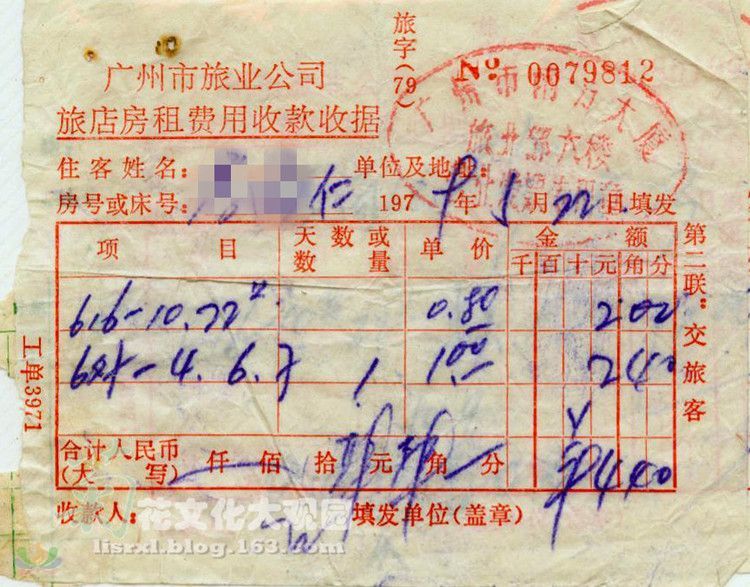 旅字(79)
№ 0079812
广州市旅业公司
旅店房租费用收款收据
广州市南方大厦
旅业部六楼
住客姓名: 单位及地址:
房号或床号: 仁 1979年5月22日填发
项目 天数 数或量 单价 金额
千百十元角分
616-10.22 0.80 2.00
4.6.7 1 1.00 2.40
合计人民币(大写) 仟 佰 拾 元 角 分 ¥4.40
收款人: 填发单位(盖章)
第二联:交旅客
工单3971
花文化大观园
lisrxl.blog.163.com